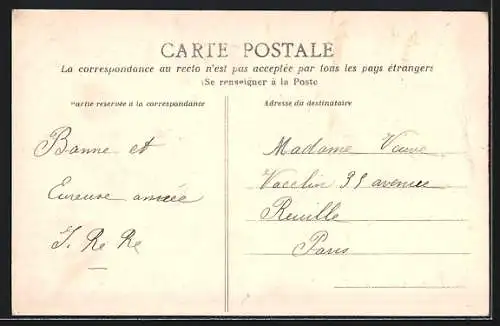 CARTE POSTALE
La correspondance au recto n'est pas acceptée par tous les pays étrangers
(Se renseigner à la Poste
Partie réservée à la correspondance
Adresse du destinataire
Bonne et
Eureuse année
J. Re Re
Madame Veuve
35 avenue
Reuille
Paris